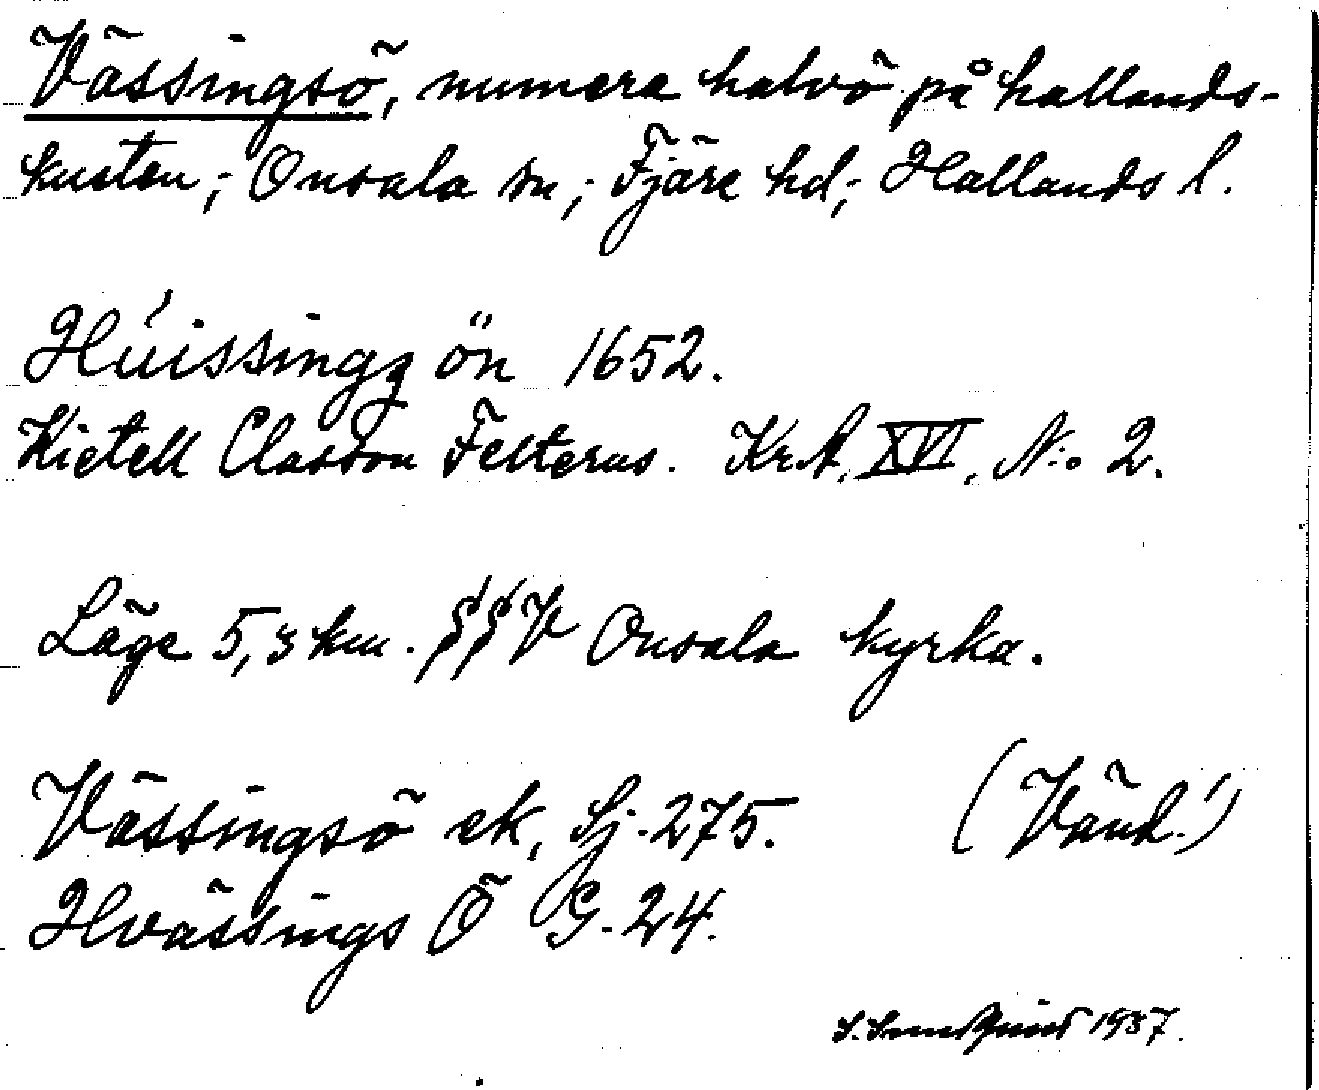 Vässingsö, numera halvö på hallands-
kusten; Onsala sn; Fjäre hd; Hallands l.
Húissingz ön 1652.
Kietell Classon Felterus. KrA, XVI, N:o 2.
Läge 5,3 km. V Onsala kyrka.
Vässingsö ek, Sj. 275. (Vänd!)
Hvässings Ö G. 24.
S. Sundquist 1937.